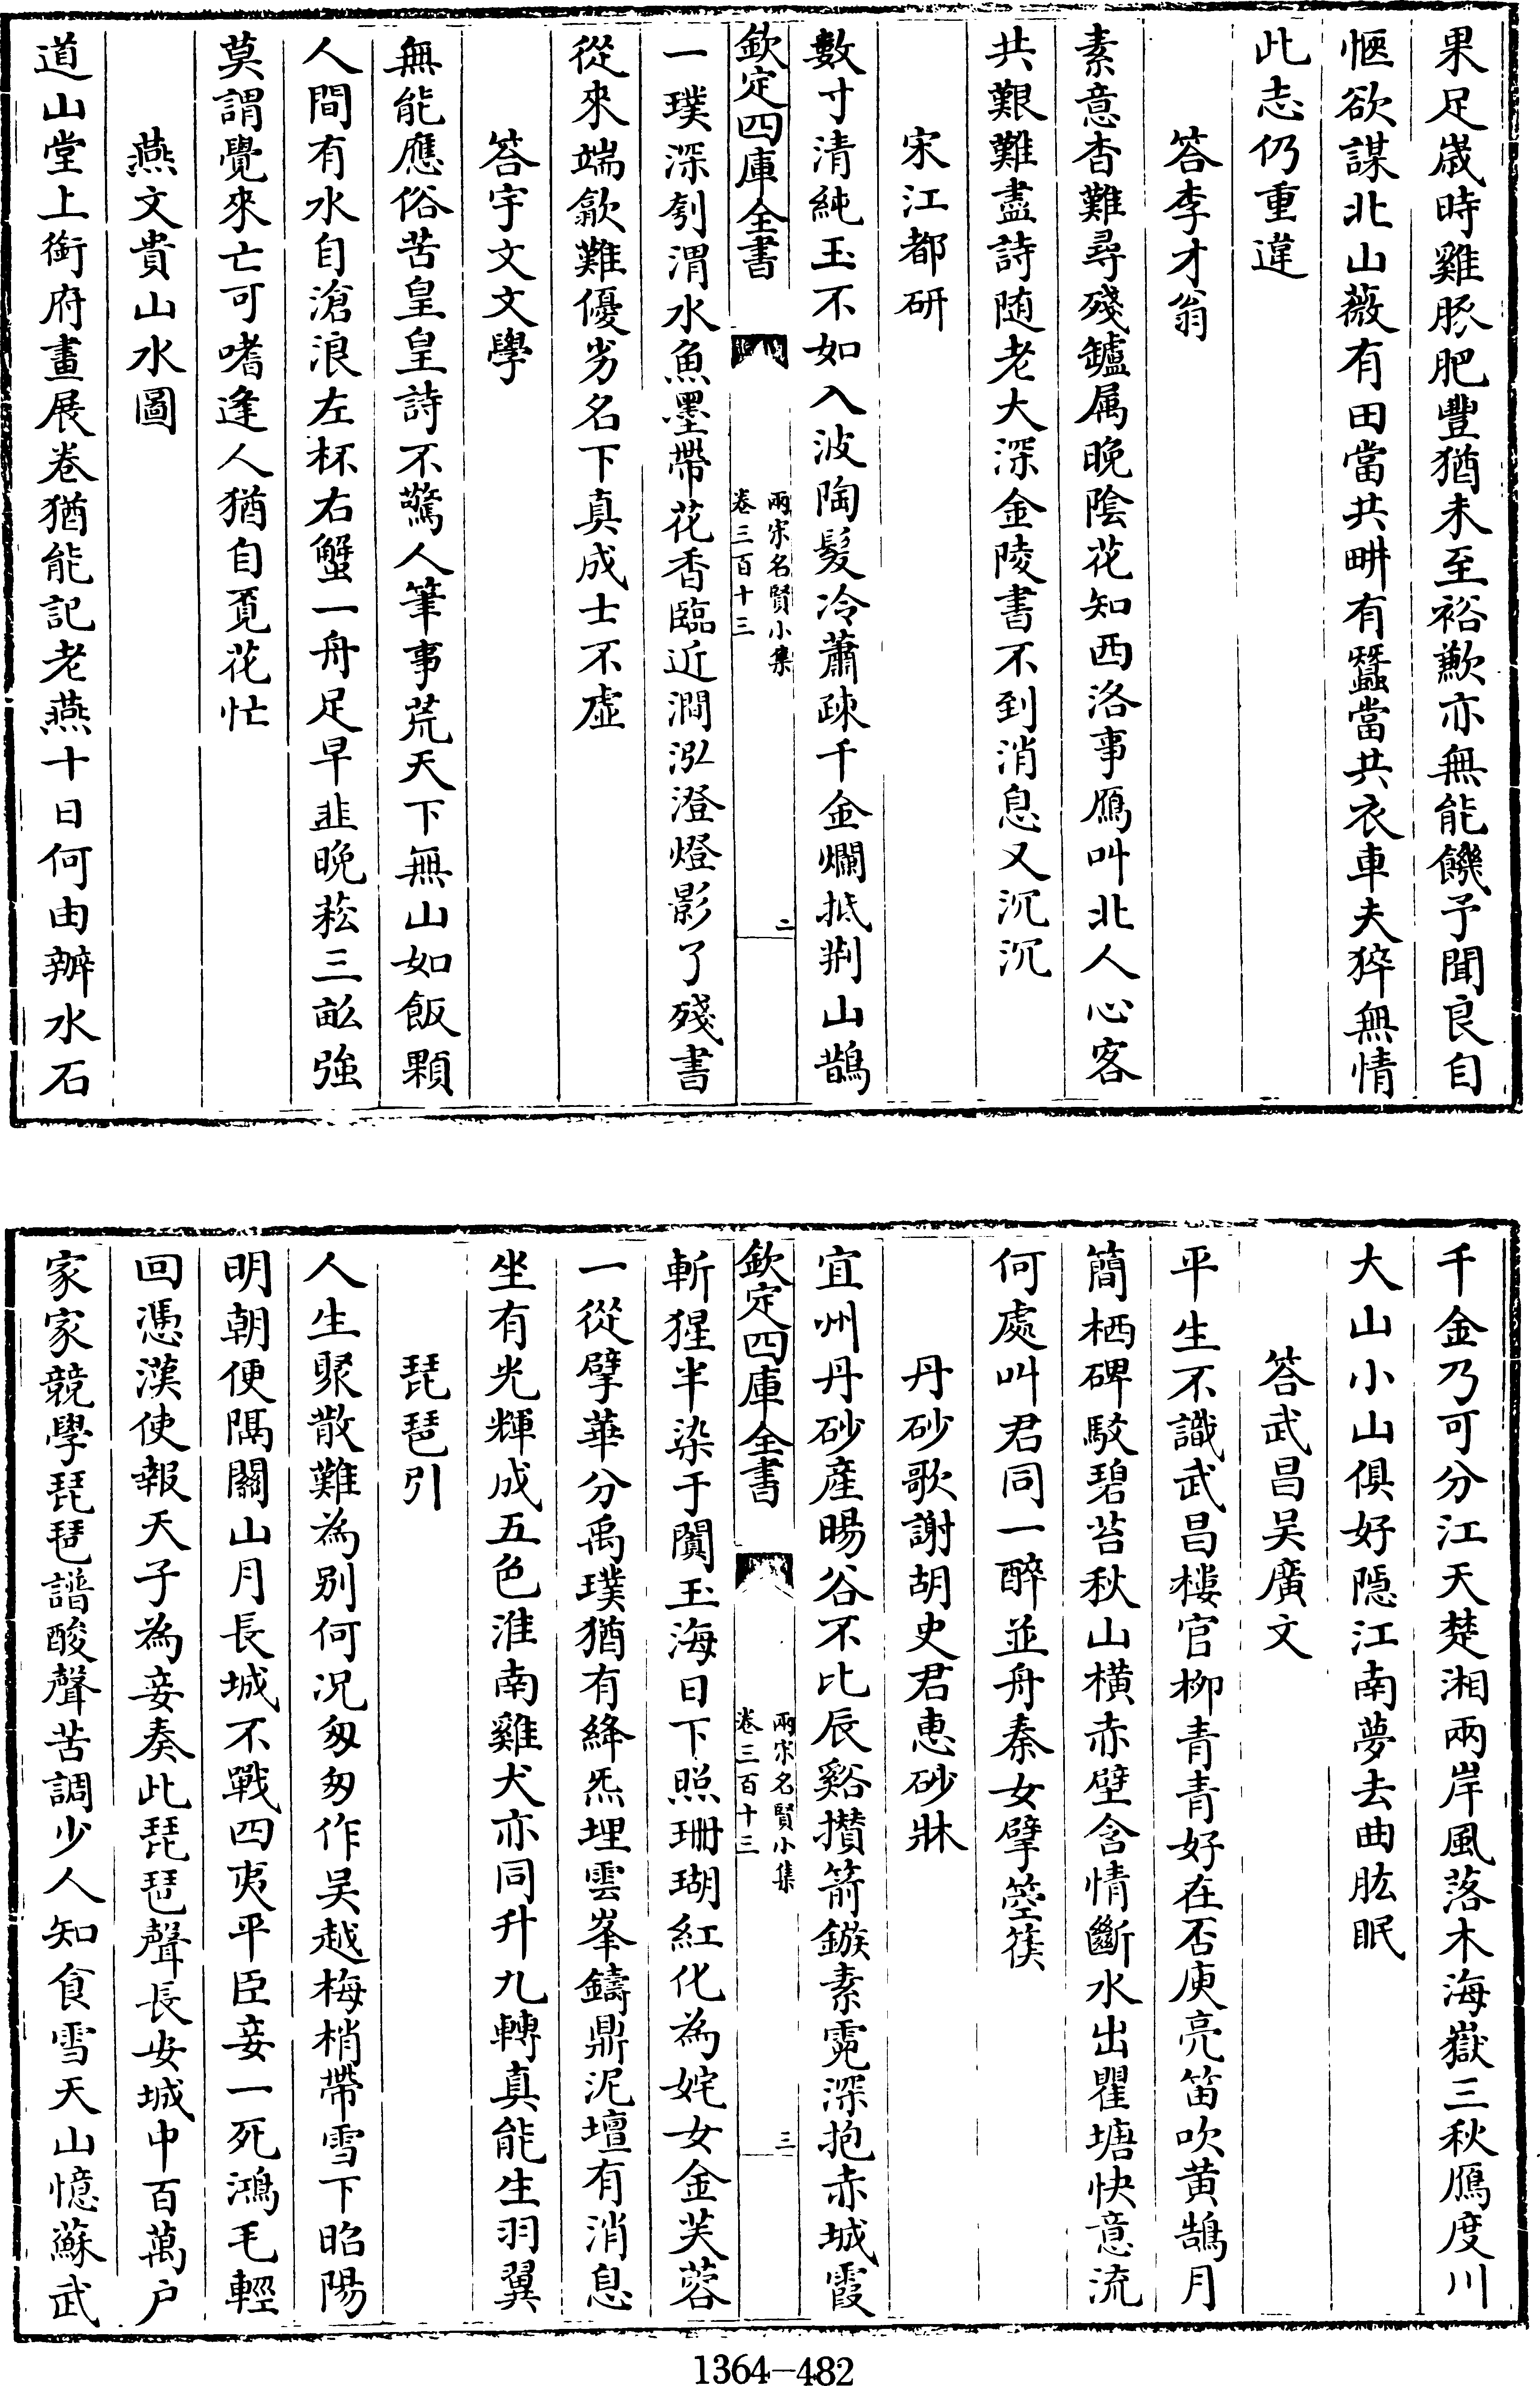 果足歲時雞豚肥豐猶未至裕歉亦無能饑予聞良自
惬欲謀北山薇有田當共畊有蠶當共衣車夫猝無情
此志仍重違
答李才翁
素意杳難尋殘鑪属晚陰花知西洛事鴈叫北人心客
共艱難盡詩随老大深金陵書不到消息又沉沉
宋江都研
數寸清純玉不如入波陶髮冷蕭疎千金爛抵荆山鵲
欽定四庫全書
兩宋名賢小集
卷三百十三
二
一璞深刳渭水魚墨帶花香臨近澗泓澄燈影了殘書
從來端歙難優劣名下真成士不虛
答宇文文學
無能應俗苦皇皇詩不驚人筆事荒天下無山如飯顆
人間有水自滄浪左杯右蟹一舟足早韭晚菘三畝強
莫謂覺來亡可嗜逢人猶自覓花忙
燕文貴山水圖
道山堂上銜府畫展卷猶能記老燕十日何由辦水石
千金乃可分江天楚湘兩岸風落木海嶽三秋鴈度川
大山小山俱好隠江南夢去曲肱眠
答武昌吴廣文
平生不識武昌樓官柳青青好在否庾亮笛吹黄鵠月
簡栖碑駮碧苔秋山横赤壁含情斷水出瞿塘快意流
何處叫君同一醉並舟秦女擘箜篌
丹砂歌謝胡史君惠砂牀
宜州丹砂產暘谷不比辰谿攅箭鏃素霓深抱赤城霞
欽定四庫全書
兩宋名賢小集
卷三百十三
三
斬猩半染于闐玉海日下照珊瑚紅化為姹女金芙蓉
一從擘華分禹璞猶有絳炁埋雲峯鑄鼎泥壇有消息
坐有光輝成五色淮南雞犬亦同升九轉真能生羽翼
琵琶引
人生聚散難為别何况匆匆作吴越梅梢帶雪下昭陽
明朝便隔關山月長城不戰四夷平臣妾一死鴻毛輕
回憑漢使報天子為妾奏此琵琶聲長安城中百萬户
家家競學琵琶譜酸聲苦調少人知食雪天山憶蘇武
1364-482